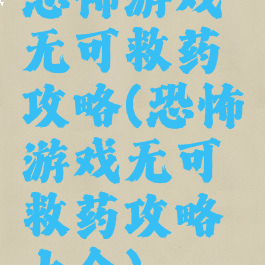 恐怖游戏
无可救药
攻略(恐怖
游戏无可
救药攻略
大全)